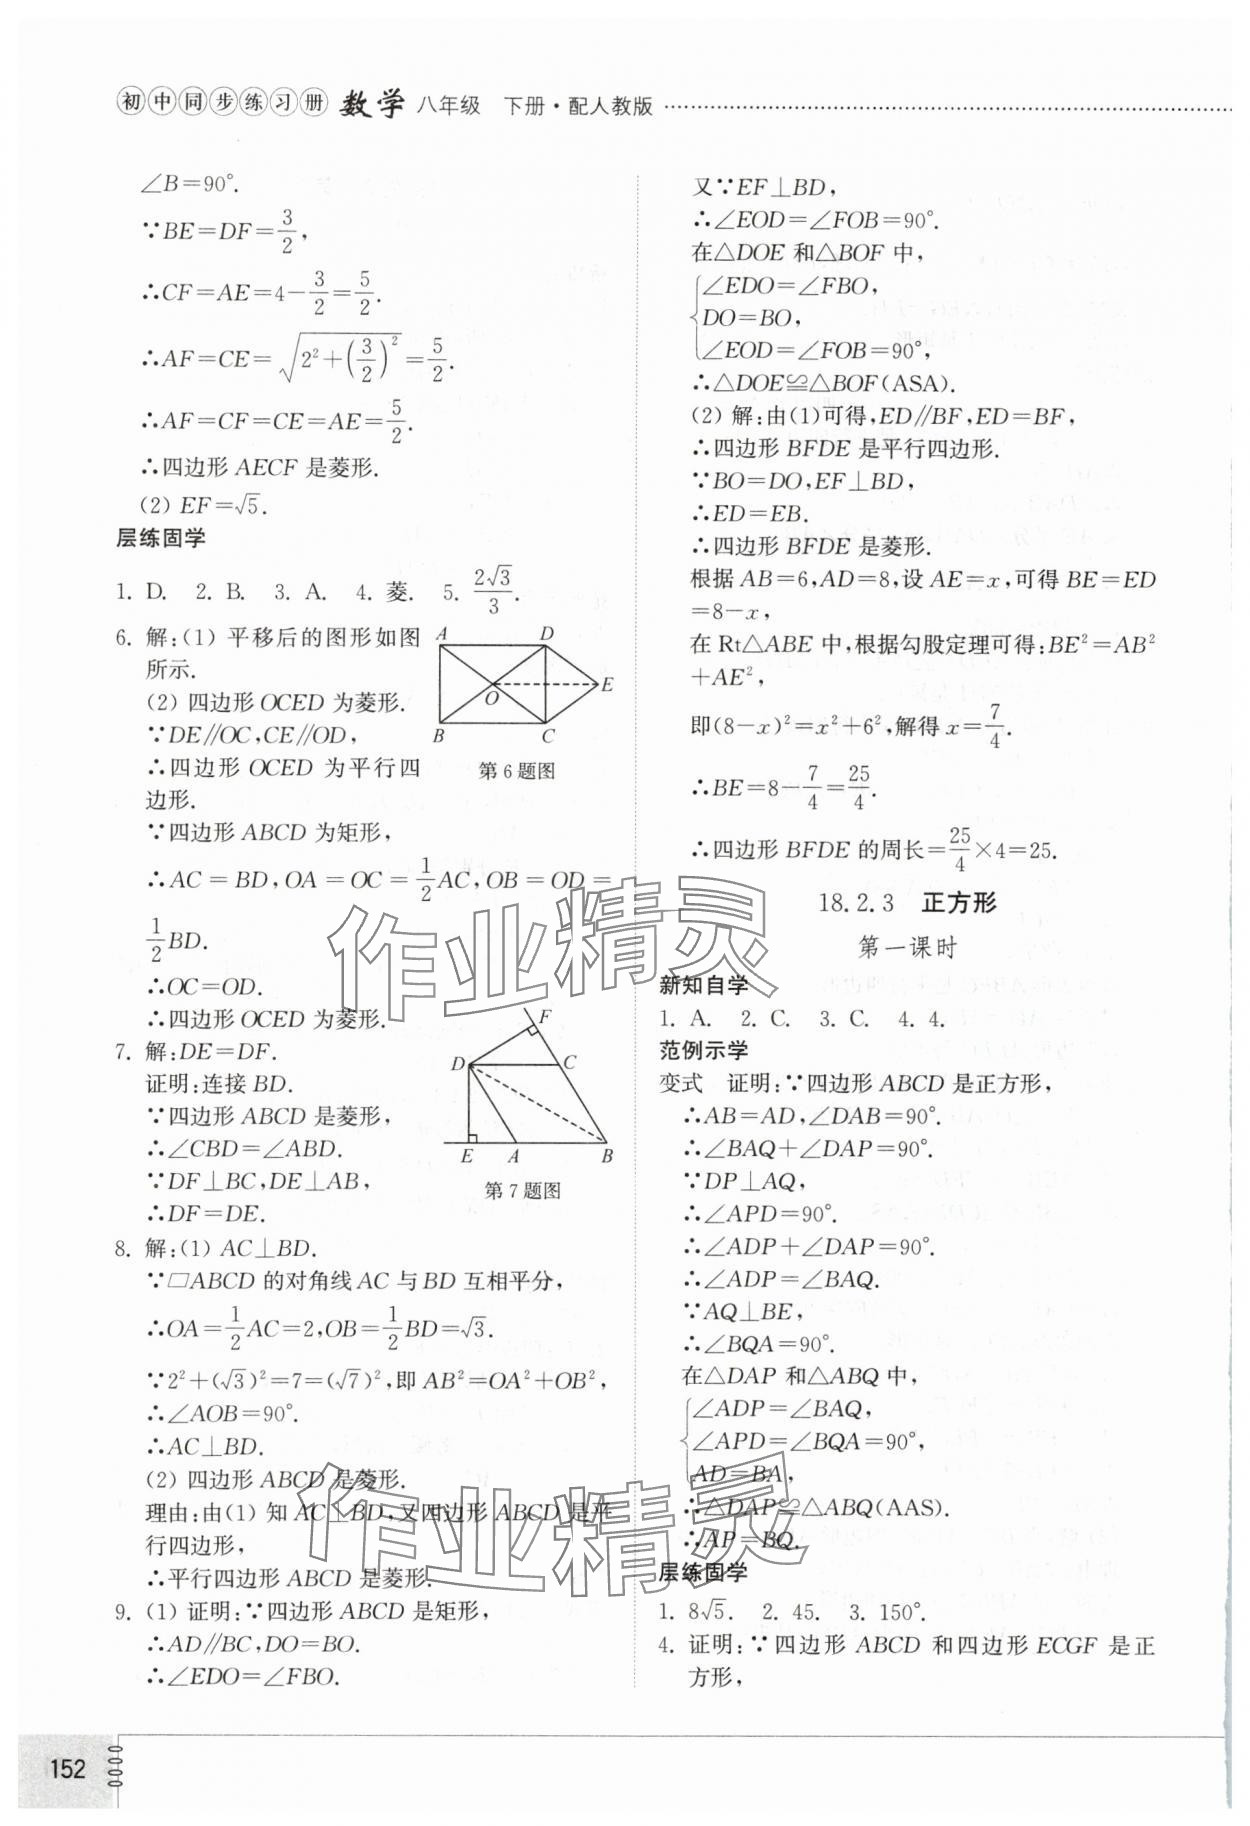 初中同步练习册 数学 八年级 下册·配人教版
∠B=90°.
∵BE=DF=3/2,
∴CF=AE=4-3/2=5/2.
∴AF=CE=√(2²+(3/2)²)=5/2.
∴AF=CF=CE=AE=5/2.
∴四边形 AECF 是菱形.
(2) EF=√5.
层练固学
1. D. 2. B. 3. A. 4. 菱. 5. 2√3/3.
6. 解:(1) 平移后的图形如图
所示.
(2) 四边形 OCED 为菱形.
∵DE∥OC,CE∥OD,
∴四边形 OCED 为平行四
边形.
A D O E B C
第 6 题图
∵四边形 ABCD 为矩形,
∴AC=BD,OA=OC=1/2AC,OB=OD=
1/2BD.
∴OC=OD.
∴四边形 OCED 为菱形.
7. 解:DE=DF.
证明:连接 BD.
∵四边形 ABCD 是菱形,
∴∠CBD=∠ABD.
∵DF⊥BC,DE⊥AB,
∴DF=DE.
F D C E A B
第 7 题图
8. 解:(1) AC⊥BD.
∵□ABCD 的对角线 AC 与 BD 互相平分,
∴OA=1/2AC=2,OB=1/2BD=√3.
∵2²+(√3)²=7=(√7)²,即 AB²=OA²+OB²,
∴∠AOB=90°.
∴AC⊥BD.
(2) 四边形 ABCD 是菱形.
理由:由(1) 知 AC⊥BD,又四边形 ABCD 是平
行四边形,
∴平行四边形 ABCD 是菱形.
9. (1) 证明:∵四边形 ABCD 是矩形,
∴AD∥BC,DO=BO.
∴∠EDO=∠FBO.
又∵EF⊥BD,
∴∠EOD=∠FOB=90°.
在△DOE 和△BOF 中,
∠EDO=∠FBO,
DO=BO,
∠EOD=∠FOB=90°,
∴△DOE≌△BOF(ASA).
(2) 解:由(1)可得,ED∥BF,ED=BF,
∴四边形 BFDE 是平行四边形.
∵BO=DO,EF⊥BD,
∴ED=EB.
∴四边形 BFDE 是菱形.
根据 AB=6,AD=8,设 AE=x,可得 BE=ED
=8-x,
在 Rt△ABE 中,根据勾股定理可得:BE²=AB²
+AE²,
即(8-x)²=x²+6²,解得 x=7/4.
∴BE=8-7/4=25/4.
∴四边形 BFDE 的周长=25/4×4=25.
18.2.3 正方形
第一课时
新知自学
1. A. 2. C. 3. C. 4. 4.
范例示学
变式 证明:∵四边形 ABCD 是正方形,
∴AB=AD,∠DAB=90°.
∴∠BAQ+∠DAP=90°.
∵DP⊥AQ,
∴∠APD=90°.
∴∠ADP+∠DAP=90°.
∴∠ADP=∠BAQ.
∵AQ⊥BE,
∴∠BQA=90°.
在△DAP 和△ABQ 中,
∠ADP=∠BAQ,
∠APD=∠BQA=90°,
AD=BA,
∴△DAP≌△ABQ(AAS).
∴AP=BQ.
层练固学
1. 8√5. 2. 45. 3. 150°.
4. 证明:∵四边形 ABCD 和四边形 ECGF 是正
方形,
作业精灵
作业精灵
152